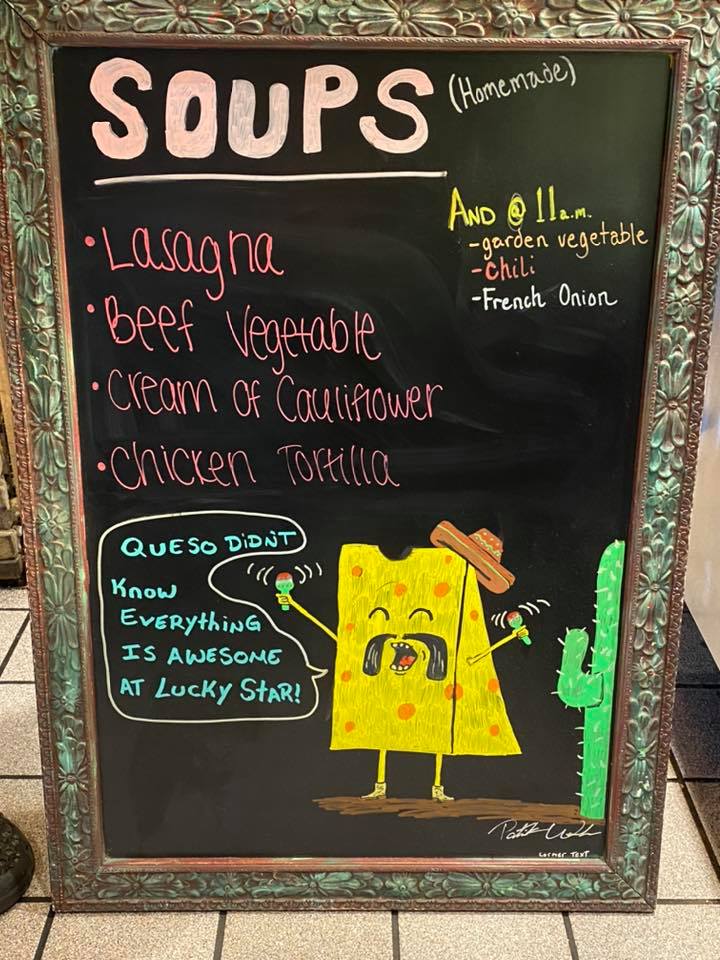 SOUPS (Homemade)
• Lasagna
• Beef Vegetable
• Cream of Cauliflower
• Chicken Tortilla
AND @ 11a.m.
-garden vegetable
-Chili
-French Onion
QUESO DiDNT
KNOW
EVERYTHiNG
IS AWESOME
AT LUCKY STAR!
CORNER TEXT